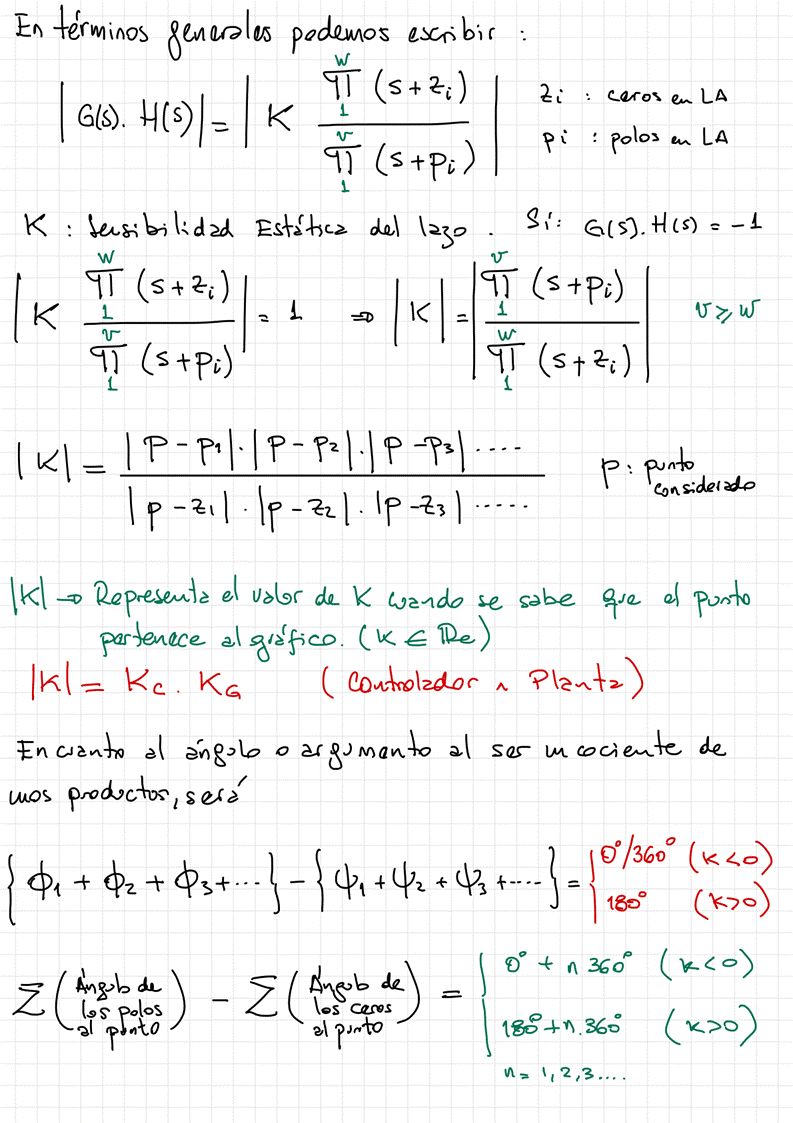 En términos generales podemos escribir :
|G(s). H(s)| = | K ∏₁ʷ (s+zi) / ∏₁ᵛ (s+pi) |
zi : ceros en LA
pi : polos en LA
K : Sensibilidad Estática del lazo . Si: G(s). H(s) = -1
| K ∏₁ʷ (s+zi) / ∏₁ᵛ (s+pi) | = 1 ⇒ |K| = | ∏₁ᵛ (s+pi) / ∏₁ʷ (s+zi) | v ⩾ w
|K| = |p-p1|.|p-p2|.|p-p3| .... / |p-z1|.|p-z2|.|p-z3| .....
p: punto
considerado
|K| → Representa el valor de K cuando se sabe que el punto
pertenece al gráfico. (K ∈ Re)
|K| = Kc . KG (Controlador ∧ Planta)
En cuanto al ángulo o argumento al ser un cociente de
unos productos, será
{ϕ1 + ϕ2 + ϕ3 + ...} - {ψ1 + ψ2 + ψ3 + ....} = { 0°/360° (K<0)
180° (K>0)
Σ (Ángulo de los polos al punto) - Σ (Ángulo de los ceros al punto) = { 0° + n 360° (K<0)
180° + n.360° (K>0)
n = 1, 2, 3 ....